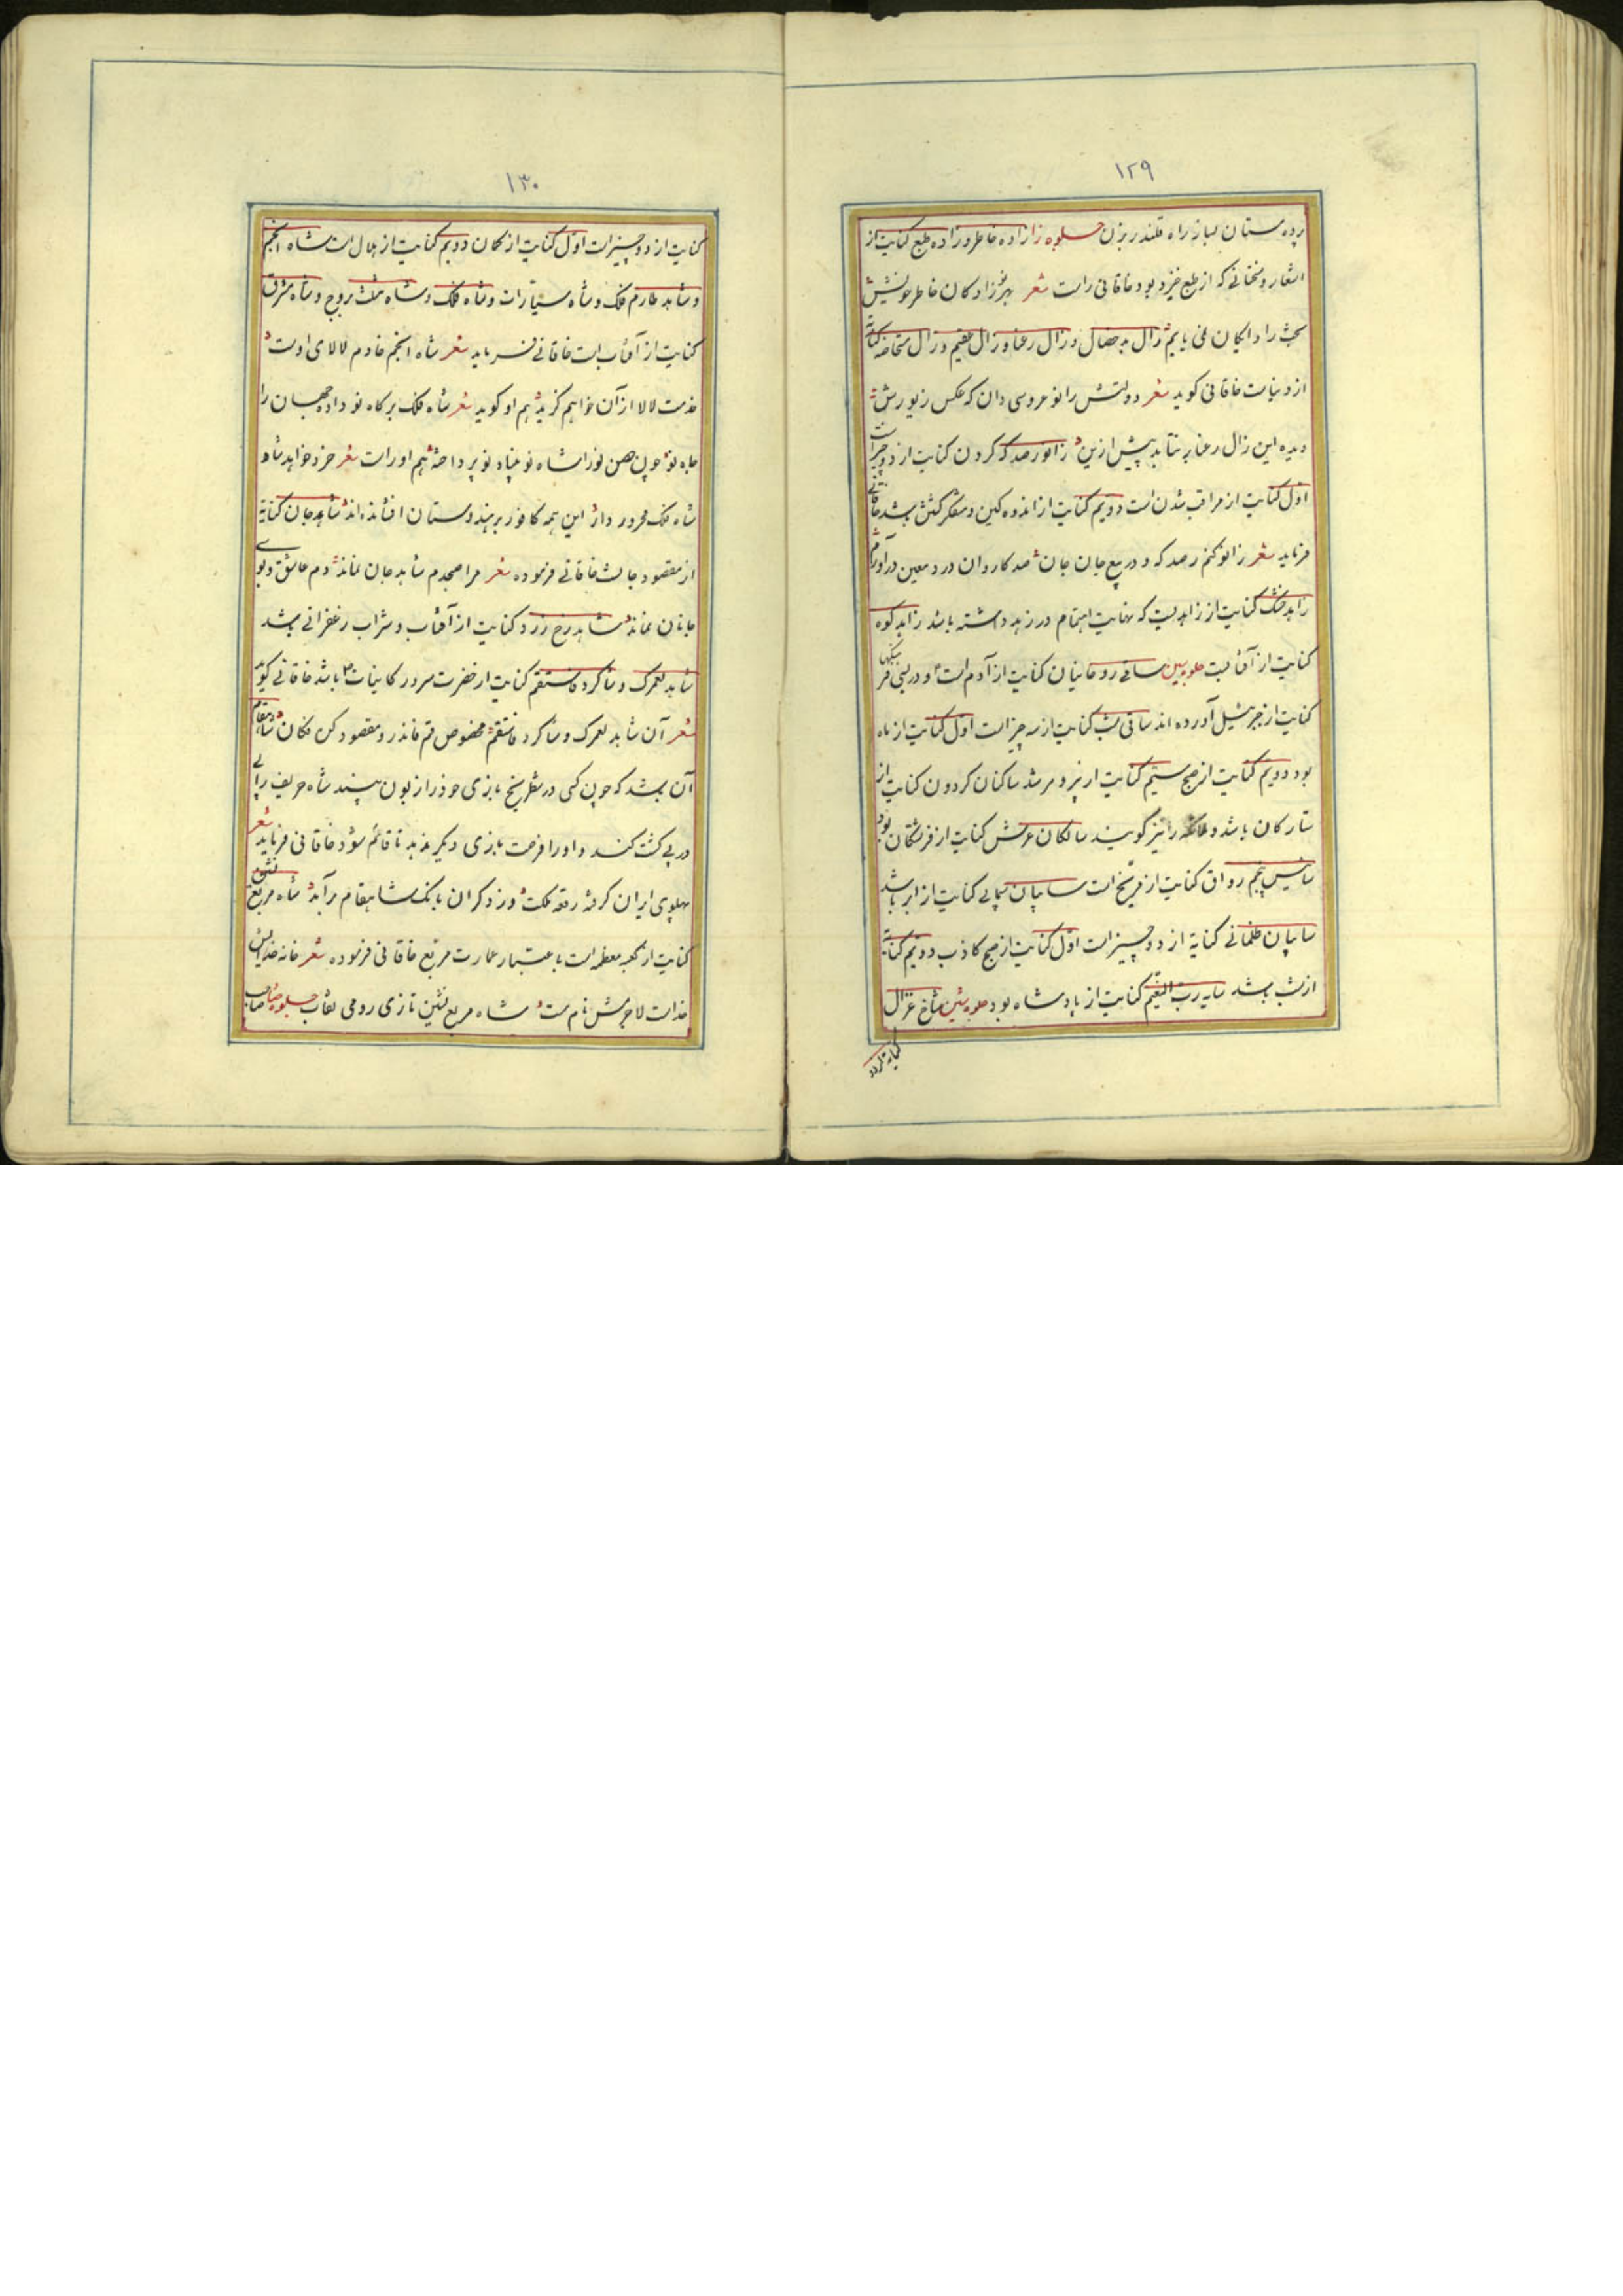 ۱۲۹
پرده مستان بساز راه قلندر بزن جلوه زا زاده خاطر و زاده طبع کنایت از
اشعار و سخنانی که از طبع خیزد بود خاقانی راست شعر بهر زادکان خاطر خویش
بخت را دایکان نمی یابم زال بد خصال و زال رعنا و زال عقیم و زال مستحاضه کنایة
از دنیاست خاقانی کوید شعر دولتش را نو عروسی دان که عکس زیورش
دیده این زال رعنا بر نتابد پیش ازین زانو رصدکه کردن کنایت از دو چیز است
اول کنایت از مراقب شدن است دویم کنایت از اندوه کین و متفکر کشتن باشد خاقانی
فرماید شعر زانو کنم رصد که و در بیع جان جان صد کاروان درد معین درآورم
زاهد خشک کنایت از زاهدیست که نهایت اهتمام در زهد داشته باشد زاهد کوه
کنایت از آفتابست جلوه سین ساقی روحانیان کنایت از آدم است و در بعضی فرهنکها
کنایت از جبرئیل آورده اند ساقی شب کنایت از سه چیز است اول کنایت از ماه
بود دویم کنایت از صبح سیم کنایت از پیر و مرشد ساکنان کردون کنایت از
ستارکان باشد و ملائکه را نیز کویند سالکان عرش کنایت از فرشتکان بود
سائیس پنجم رواق کنایت از مریخ است سایبان سیمابی کنایت از ابر باشد
سایبان ظلمانی کنایة از دو چیز است اول کنایت از صبح کاذب دویم کنایة
از شب باشد سایه رب النعیم کنایت از پادشاه بود جلوه شین شاخ غزال
۱۳۰
کنایت از دو چیز است اول کنایت از کمان دویم کنایت از هلال است شاه انجم
و شاهد طارم فلک و شاه سیارات و شاه فلک و شاه مثلث بروج و شاه مشرق
کنایت از آفتاب است خاقانی فرماید شعر شاه انجم خادم لالای اوست
خدمت لالا از آن خواهم کزید هم او کوید شعر شاه فلک بر کاه تو داده جهان را
جاه تو چون صحن نور انشاه نو پناه نو پرداخته هم اوراست شعر خرد خواهد شاه
شاه فلک محرور دار این همه کافور بر هندوستان افشانده اند شاهد جان کنایة
از مقصود جانست خاقانی فرموده شعر مرا صبحدم شاهد جان نماند دم عاشق و بوی
جانان نماند شاهد رخ زرد کنایت از آفتاب و شراب زعفرانی باشد
شاهد لعمرک و شاکرد فاستقم کنایت از حضرت سرور کاینات باشد خاقانی کوید
شعر آن شاهد لعمرک و شاکرد فاستقم مخصوص قم فانذر و مقصود کن فکان شاه مقام
آن باشد که چون کسی در شطرنج بازی خود را زبون بیند شاه حریف را پی
در پی کشت کند و او را فرصت بازی دیکر ندهد تا قائم شود خاقانی فرماید شعر
پهلوی ایران کرفت رقعه ملکت وز دکران بانک شاهقام برآمد شاه مربع نشین
کنایت از کعبه معظمه است باعتبار عمارت مربع خاقانی فرموده شعر خانه خدایش
خداست لاجرمش نام هست شاه مربع نشین تازی رومی نقاب جلوه صاد صاحب